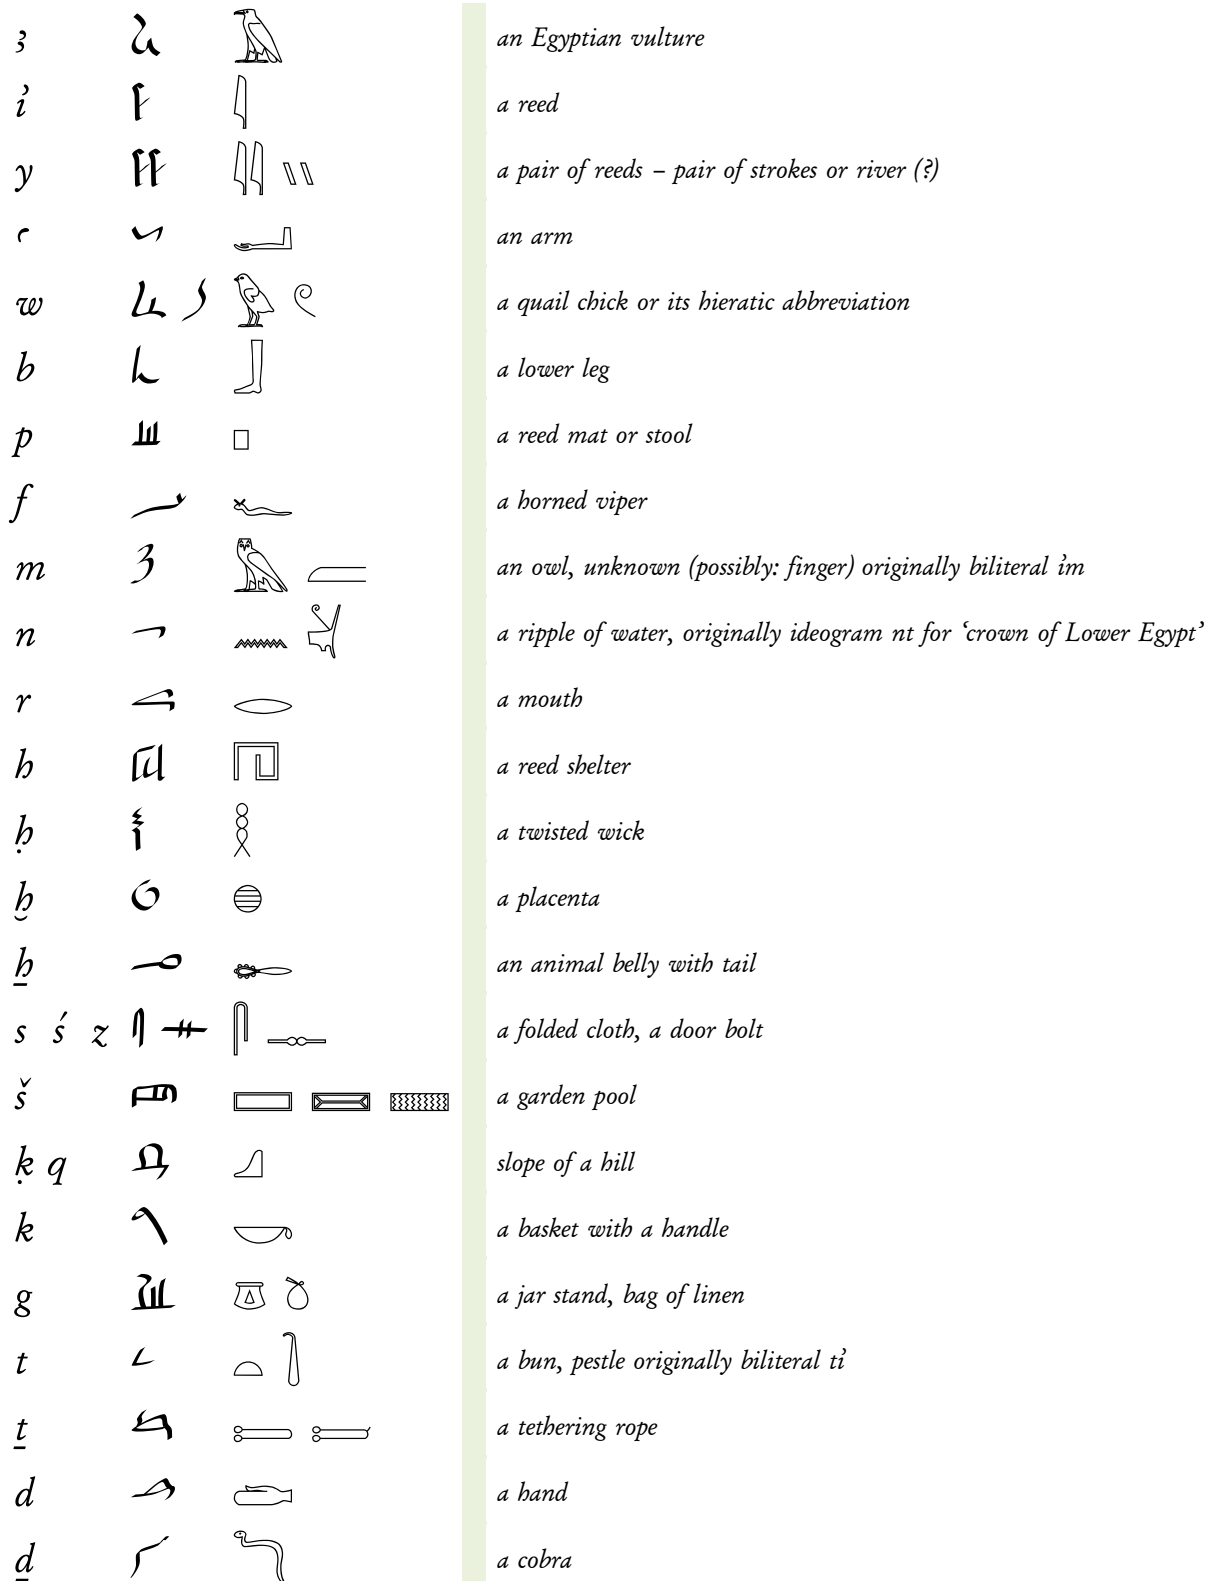 ꜣ 𓄿 an Egyptian vulture
ı͗ 𓇋 a reed
y 𓇌 𓏭 a pair of reeds – pair of strokes or river (?)
ꜥ 𓂝 an arm
w 𓅱 𓏲 a quail chick or its hieratic abbreviation
b 𓃀 a lower leg
p 𓊪 a reed mat or stool
f 𓆑 a horned viper
m 𓅓 𓐝 an owl, unknown (possibly: finger) originally biliteral ı͗m
n 𓈖 𓋔 a ripple of water, originally ideogram nt for ‘crown of Lower Egypt’
r 𓂋 a mouth
h 𓉔 a reed shelter
ḥ 𓎛 a twisted wick
ḫ 𓐍 a placenta
ẖ 𓄡 an animal belly with tail
s ś z 𓋴 𓊃 a folded cloth, a door bolt
š 𓈙 𓈚 𓈛 a garden pool
ḳ q 𓈎 slope of a hill
k 𓎡 a basket with a handle
g 𓎼 𓎤 a jar stand, bag of linen
t 𓏏 𓍘 a bun, pestle originally biliteral tı͗
ṯ 𓍿 𓎀 a tethering rope
d 𓂧 a hand
ḏ 𓆓 a cobra